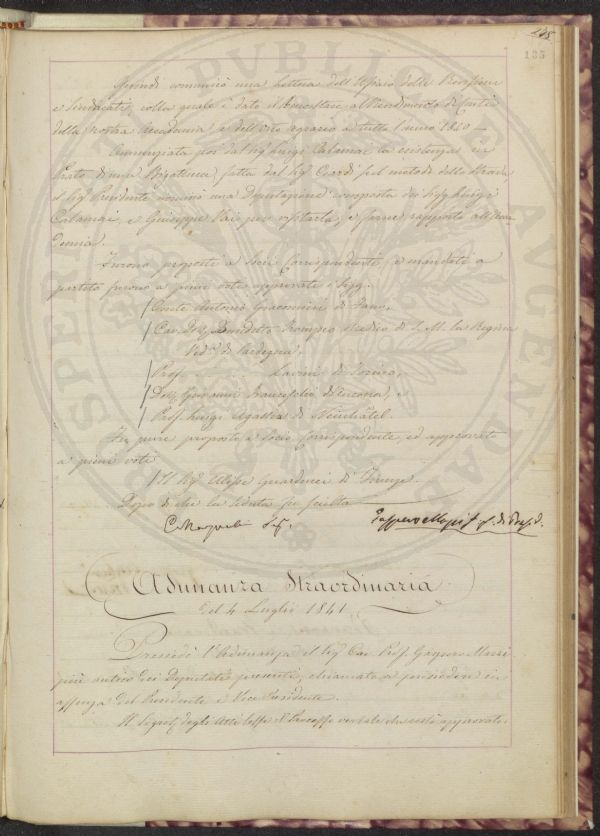 135
135
Quindi comunicò una Lettera dell'Ufizio delle Revisioni
e Sindacati, colla quale è dato il benestare al Rendimento di Conti
della Nostra Accademia, e dell'Orto agrario a tutto l'anno 1840 —
Annunziata poi dal Sig. Luigi Calamai la esistenza in
Prato di una Bigattiera fatta dal Sig.
il Sig. Presidente nominò una Deputazione composta dei Sigg. Luigi
Calamai, e Giuseppe per visitarla, e farne rapporto all'Acca-
demia.
Furono proposti a Socii Corrispondenti, e mandati a
partito furono a pieni voti approvati i Sigg.
Conte Antonio Giacomini di Fano,
Cav. Dot. Benedetto Trompeo Medico di S. M. la Regina
Ved. di Sardegna,
Prof. Lavini di Torino,
Dot. Giovanni Franceschi d'Ancona, e
Prof. Luigi Agassiz di Neuchâtel.
Fu pure proposto a Socio Corrispondente, ed approvato
a pieni voti
Il Sig. Ulisse Guarducci di Firenze.
Dopo di che la seduta fu sciolta
Adunanza Straordinaria
del 4 Luglio 1841
Presiedè l'Adunanza il Sig. Cav. Prof. Gaspero Mazzi
più antico dei Deputati presenti, chiamato a presiedere in
assenza del Presidente e Vice Presidente.
Il Segret. degli Atti lesse il Processo verbale che restò approvato.